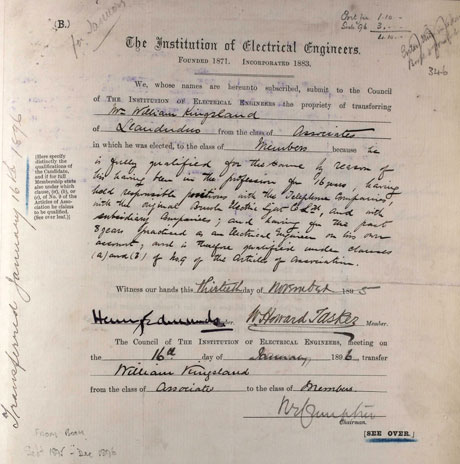 (B.)
for January
Ent. fee 1.10.-
Subs 96 3.-.-
346
The Institution of Electrical Engineers.
FOUNDED 1871. INCORPORATED 1883.
We, whose names are hereunto subscribed, submit to the Council
of THE INSTITUTION OF ELECTRICAL ENGINEERS the propriety of transferring
Wm William Kingsland
of Llandudno from the class of Associates
in which he was elected, to the class of Members because he
is fully qualified for the same by reason of
his having been in the profession for 16 years, having
held responsible positions with the Telephone Companies,
with the original Brush Electric Light Co Ld, and with
subsidiary Companies; and having for the past
8 years practised as an Electrical Engineer on his own
account; and is therefore qualified under clauses
(a) and (3) of of the Articles of Association.
[Here specify
distinctly the
qualifications of
the Candidate,
and if for full
Membership state
also under which
clause, (a), (b), or
(c), of No. 9 of the
Articles of Asso-
ciation he claims
to be qualified.
(See over leaf.)]
Witness our hands this Thirtieth day of November 1895
Henry Edmunds Member. W. Howard Tasker Member.
The Council of THE INSTITUTION OF ELECTRICAL ENGINEERS, meeting on
the 16th day of January, 1896, transfer
William Kingsland
from the class of Associates to the class of Members.
Chairman.
[SEE OVER.]
Transferred January 16th 1896
FROM BOOK
Sept 1895 - Dec 1896